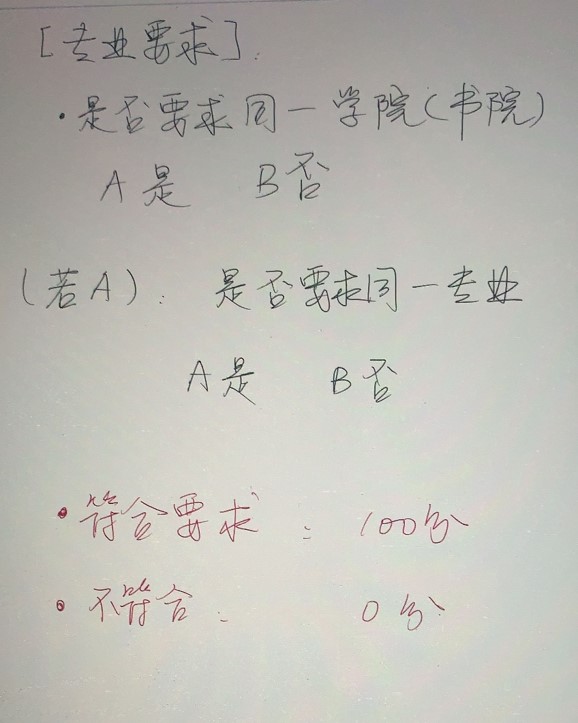 [专业要求]:
·是否要求同一学院(书院)
A是 B否
(若A): 是否要求同一专业
A是 B否
·符合要求: 100分
·不符合: 0分